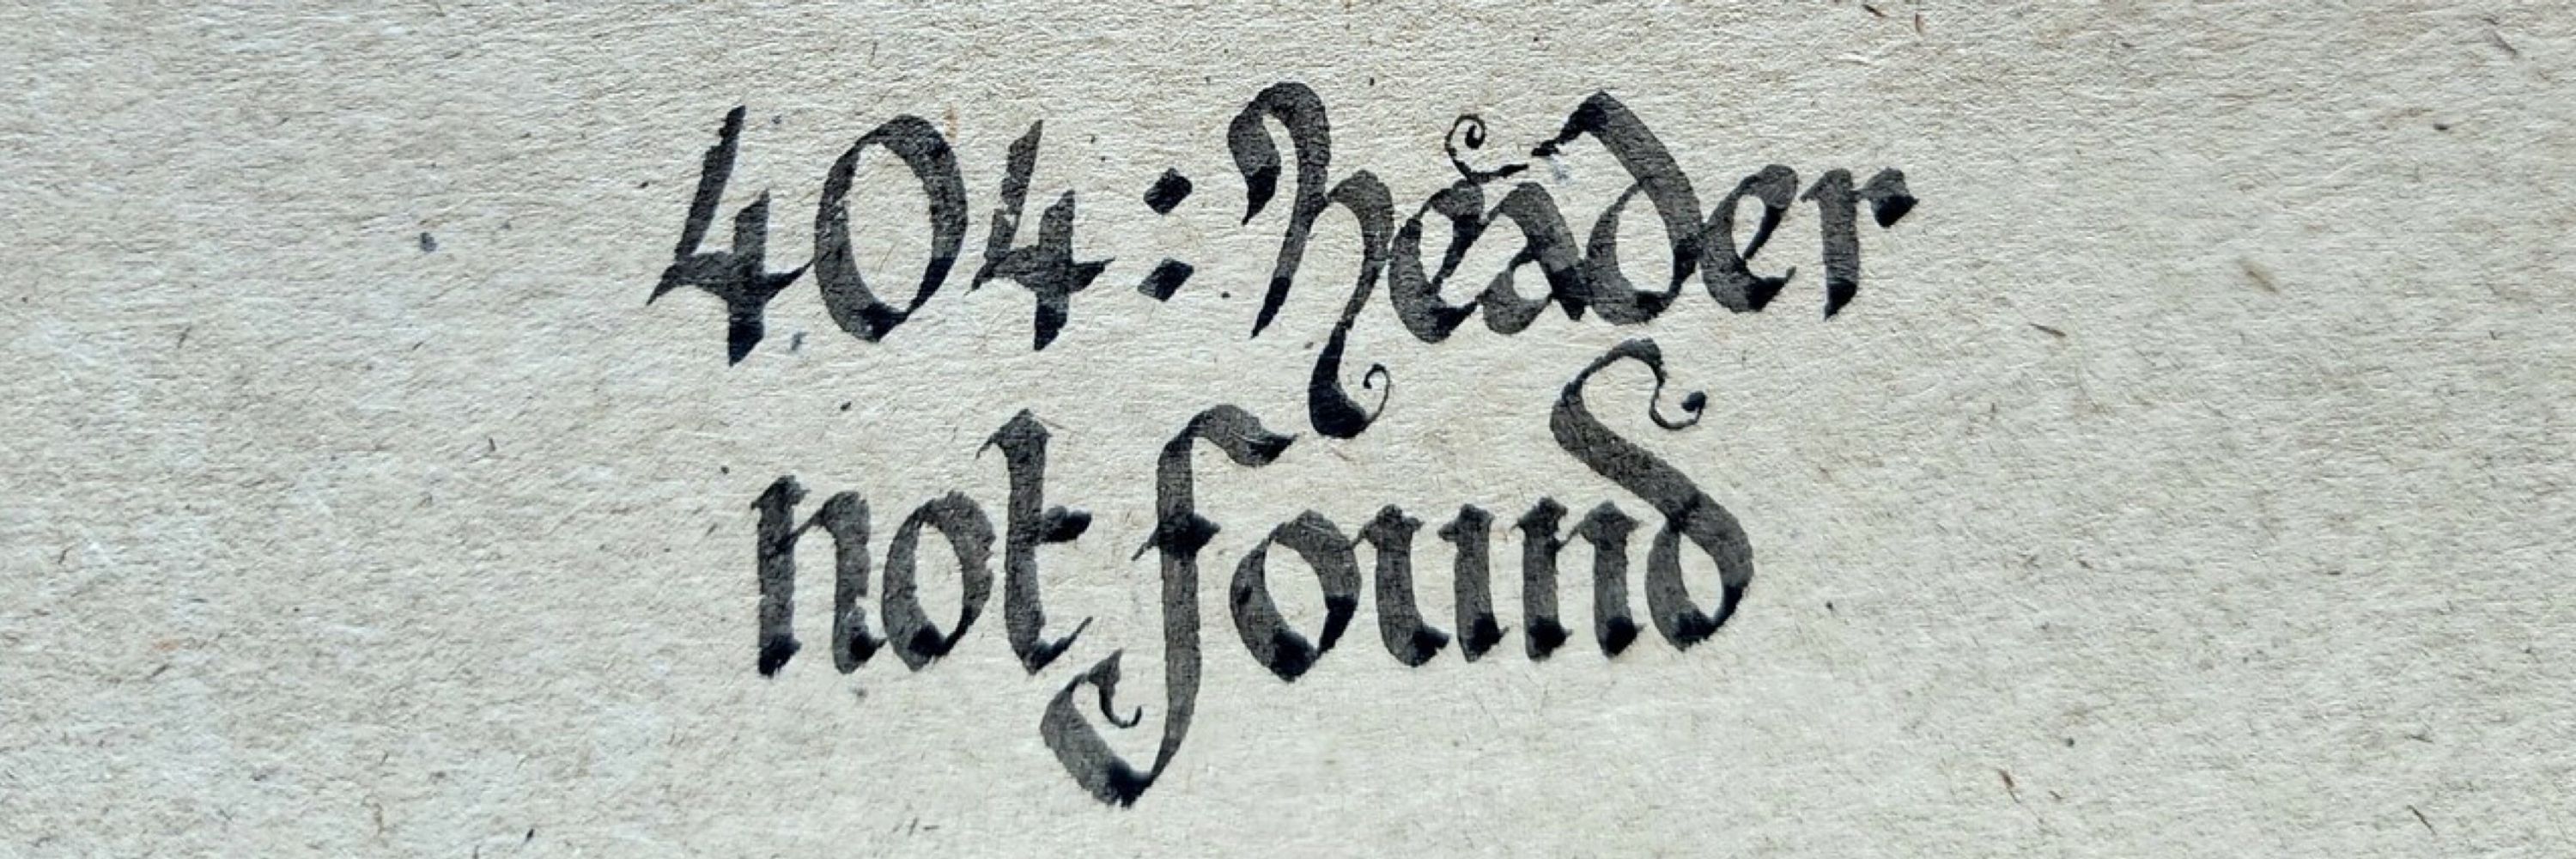 404: header
not found